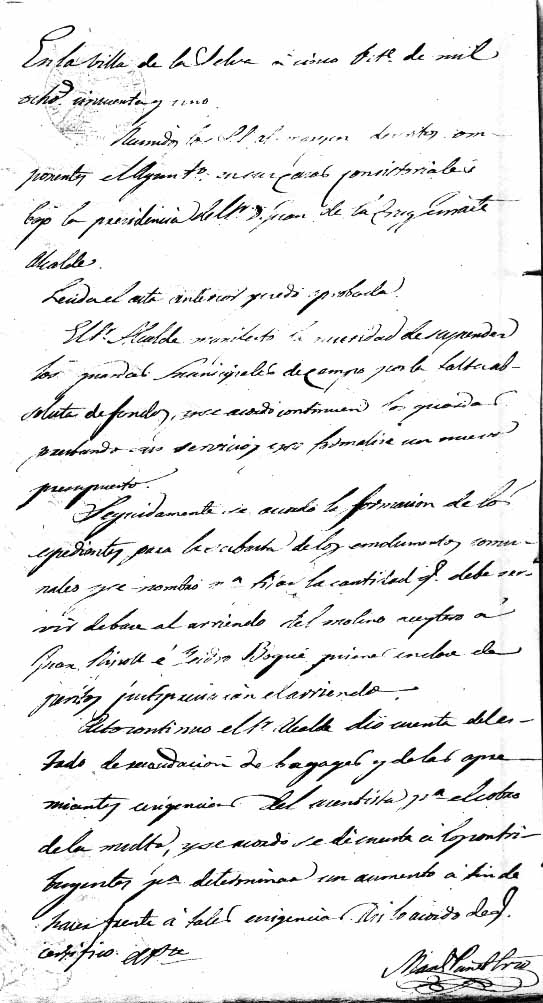 En la Villa de la Selva à cinco Db.e de mil
ocho.s cincuenta y uno.
Reunidos los SS. al margen descritos com-
ponentes el Ayunt.o en sus casas consistoriales
bajo la presidencia del S.r D. Juan de la Cruz
Alcalde.
Leida el acta anterior quedó aprobada.
El S.r Alcalde manifestó la necesidad de suspender
los guardas municipales de campo por la falta ab-
soluta de fondos, y se acordó continuen los guardas
prestando sus servicios y se formalise un nuevo
presupuesto.
Seguidamente se acordó la formacion de los
espedientes para la subasta de los emolumentos comu-
nales y se nombró p.a fijar la cantidad q.e debe ser-
vir de base al arriendo del molino aceytero á
Juan Ripoll é Isidro Boqué primero en clase de
peritos justiprecian el arriendo.
Acto continuo el S.r Alcalde dió cuenta del es-
tado de recaudacion de bagages y de las apre-
miantes exigencias del asentista p.a el cobro
de la multa, y se acordó se dé cuenta á los contri-
buyentes p.a determinar un aumento á fin de
hacer frente á tales exigencias. Asi lo acordó de q.e
certifico.